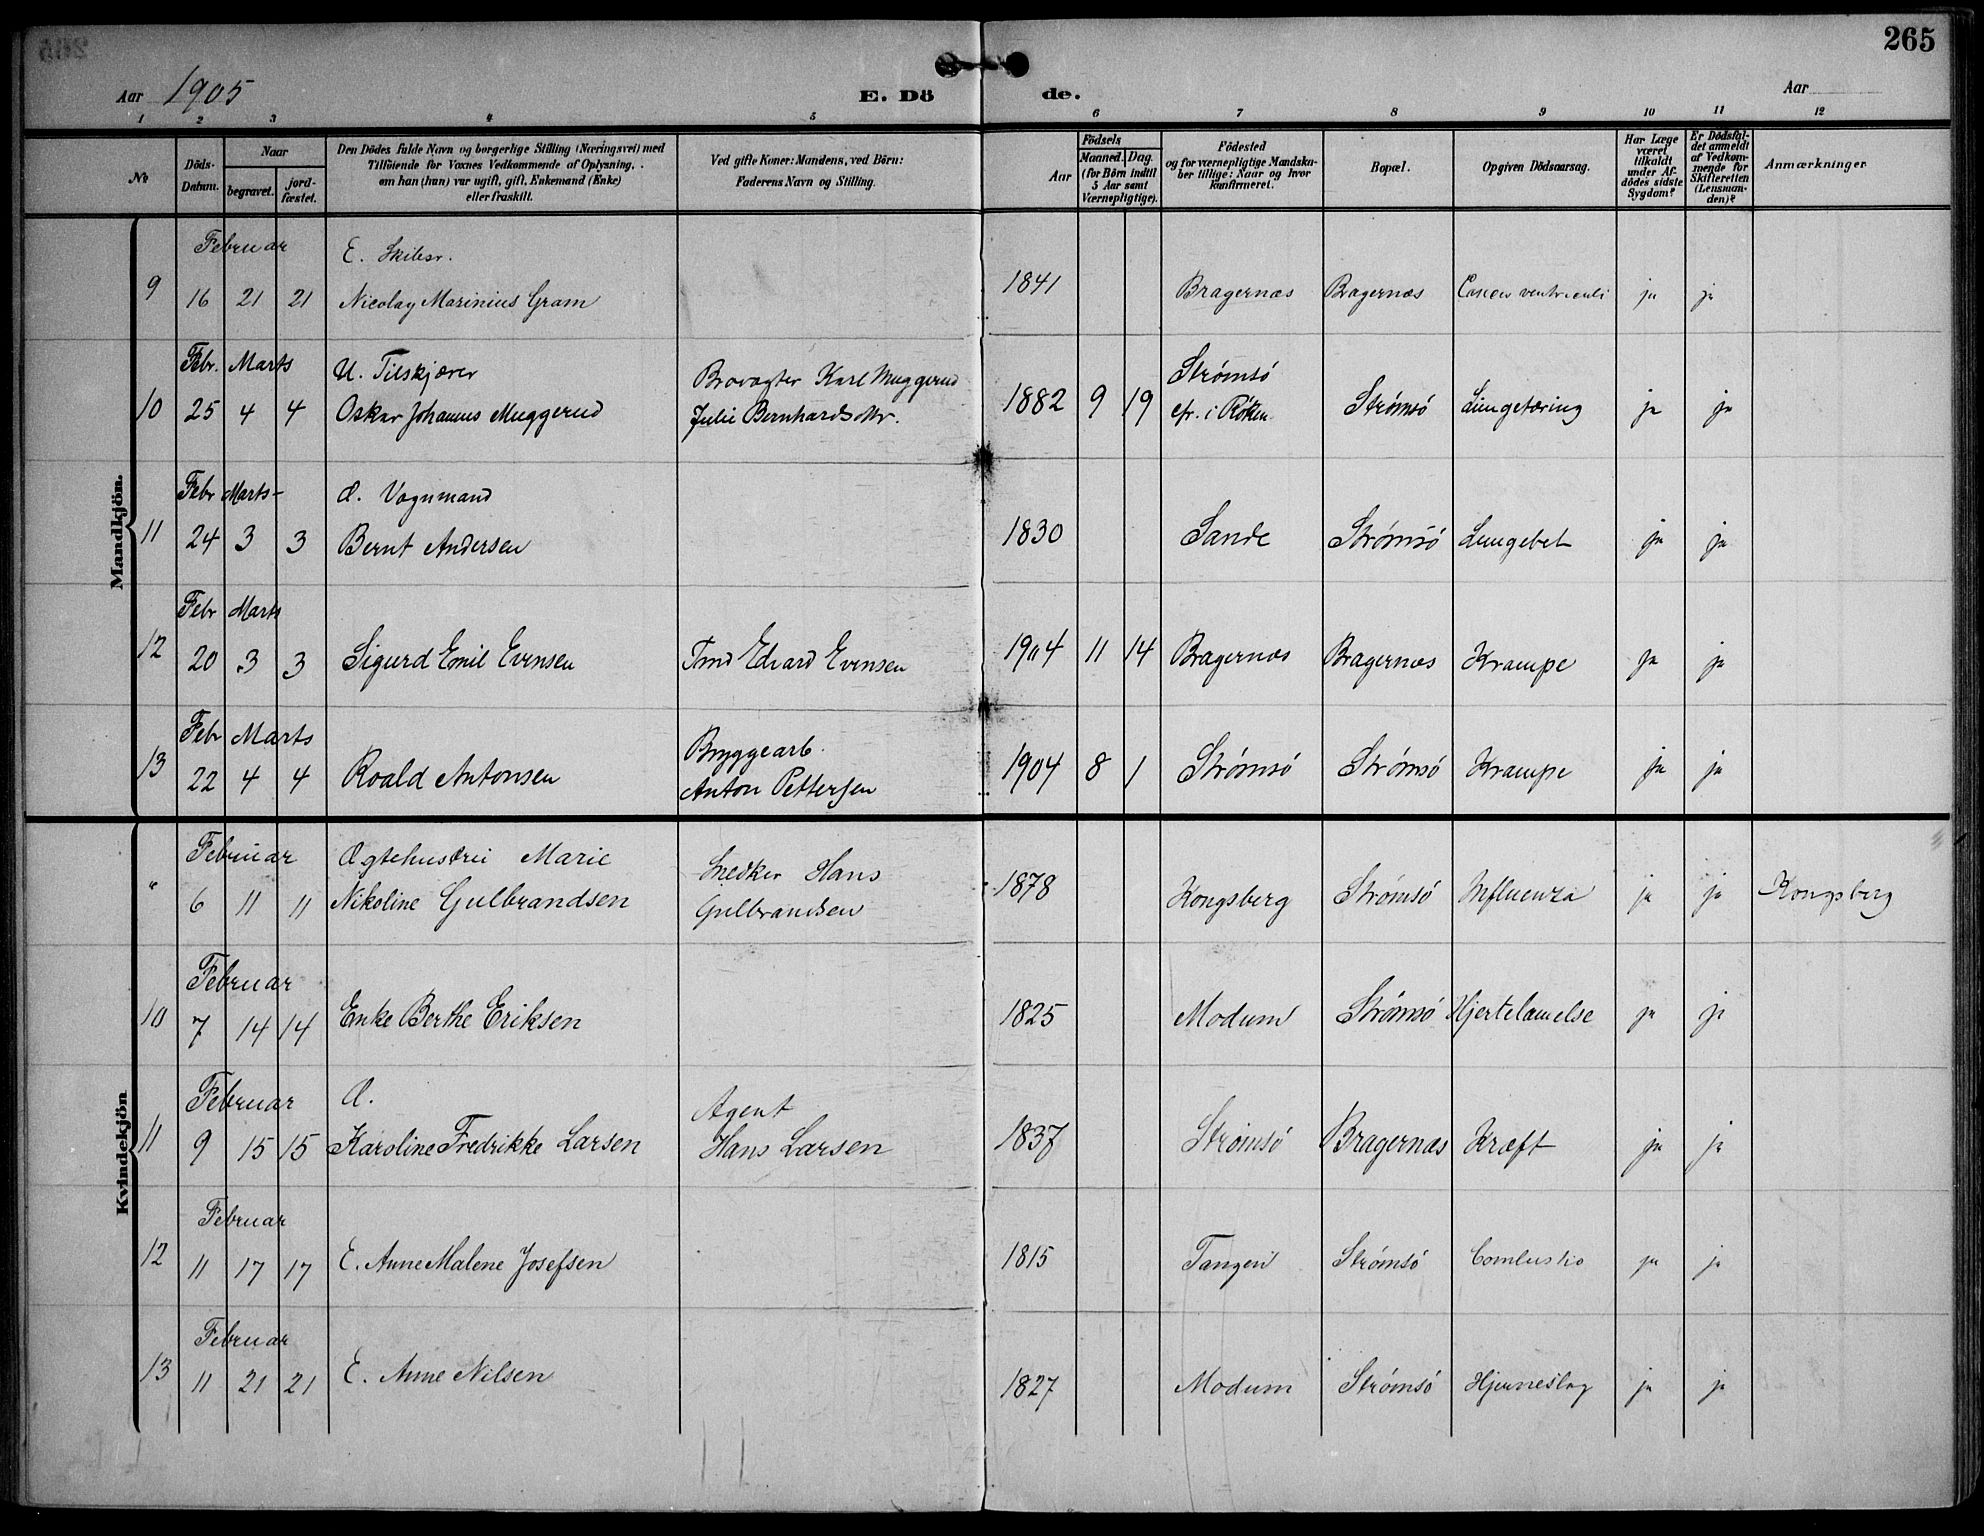 265
Aar 1905
E. Dö de.
Aar
1 2 3 4 5 6 7 8 9 10 11 12
No
Döds-Datum.
Naar
begravet.
jord-fæstet.
Den Dödes fulde Navn og borgerlige Stilling (Næringsvei) med
Tilföiende for Voxnes Vedkommende af Oplysning,
om han (hun) var ugift, gift, Enkemand (Enke)
eller fraskilt.
Ved gifte Koner: Mandens, ved Börn:
Faderens Navn og Stilling.
Födsels
Aar
Maaned. Dag.
(for Börn indtil
5 Aar samt
Værnepligtige).
Födested
og for værnepligtige Mandska-
ber tillige: Naar og hvor
konfirmeret.
Bopæl.
Opgiven Dödsaarsag.
Har Læge
været
tilkaldt
under Af-
dödes sidste
Sygdom?
Er Dödsfal-
det anmeldt
af Vedkom-
mende for
Skifteretten
(Lensman-
den)?
Anmærkninger
Mandkjön.
Februar E. Skibsr.
9 16 21 21 Nicolay Marinius Gram 1841 Bragernæs Bragernæs Cancer ventriculi ja ja
Febr. Marts U. Tilskjærer Brovagter Karl Muggerud Strømsö
10 25 4 4 Oskar Johannes Muggerud Julie Bernhardsdtr. 1882 9 19 cfr. i Røken Strømsö Lungetæring ja ja
Febr Marts Æ. Vognmand
11 24 3 3 Bernt Andersen 1830 Sande Strømsö Lungebet ja ja
Febr Marts
12 20 3 3 Sigurd Emil Evensen Tmd Edvard Evensen 1904 11 14 Bragernæs Bragernæs Krampe ja ja
Febr Marts Bryggearb.
13 22 4 4 Roald Antonsen Anton Pettersen 1904 8 1 Strømsö Strømsö Krampe ja ja
Kvindekjön
Februar Ægtehustru Marie Snedker Hans
" 6 11 11 Nikoline Gulbrandsen Gulbrandsen 1878 Kongsberg Strømsö Influenza ja ja Kongsberg
Februar
10 7 14 14 Enke Berthe Eriksen 1825 Modum Strømsö Hjertelamelse ja ja
Februar Æ. Agent
11 9 15 15 Karoline Fredrikke Larsen Hans Larsen 1837 Strømsö Bragernæs Kræft ja ja
Februar
12 11 17 17 E. Anne Malene Josefsen 1815 Tangen Strømsö Combustio ja ja
Februar
13 11 21 21 E. Anne Nilsen 1827 Modum Strømsö Hjerneslag ja ja